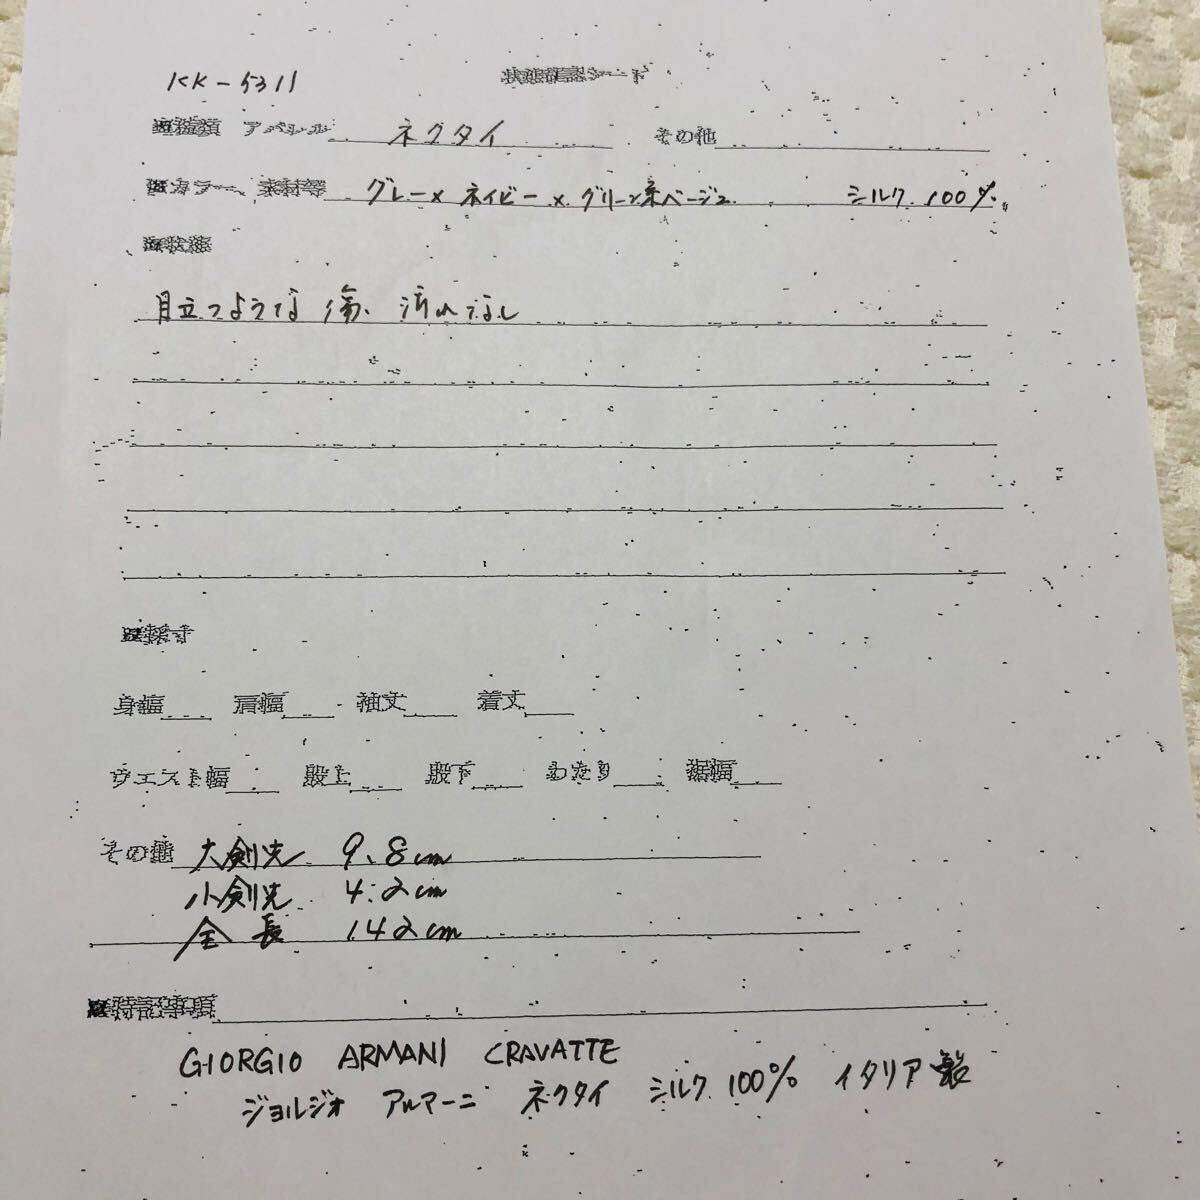 KK-5311
状態確認シート
■種類 アパレル ネクタイ その他
■カラー、素材等 グレー×ネイビー×グリーン系ベージュ シルク 100%
■状態
目立つような傷、汚れなし
■採寸
身幅 肩幅 袖丈 着丈
ウエスト幅 股上 股下 わたり 裾幅
その他 大剣先 9.8cm
小剣先 4.2cm
全長 142cm
■特記事項
GIORGIO ARMANI CRAVATTE
ジョルジオ アルマーニ ネクタイ シルク 100% イタリア製